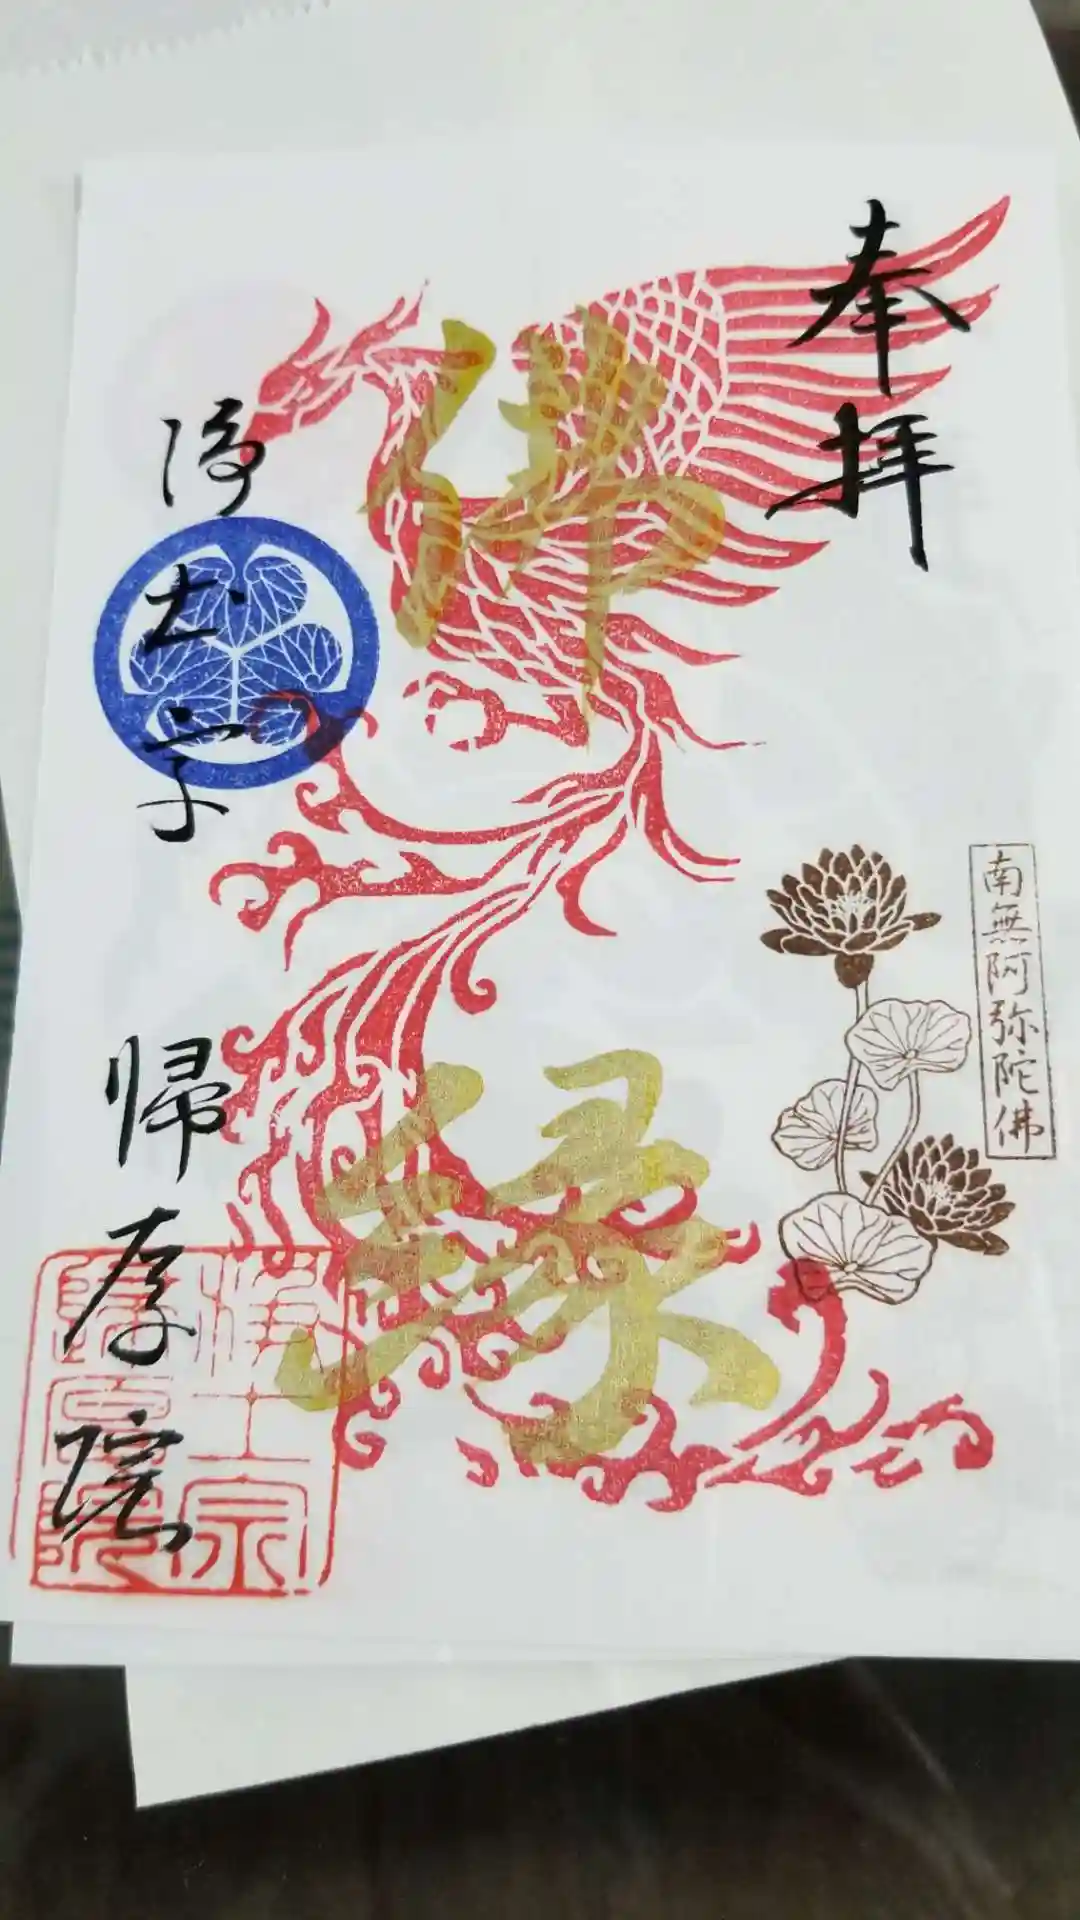 奉拝
南無阿弥陀佛
佛縁
浄土宗
帰厚院
淨土宗
歸厚院